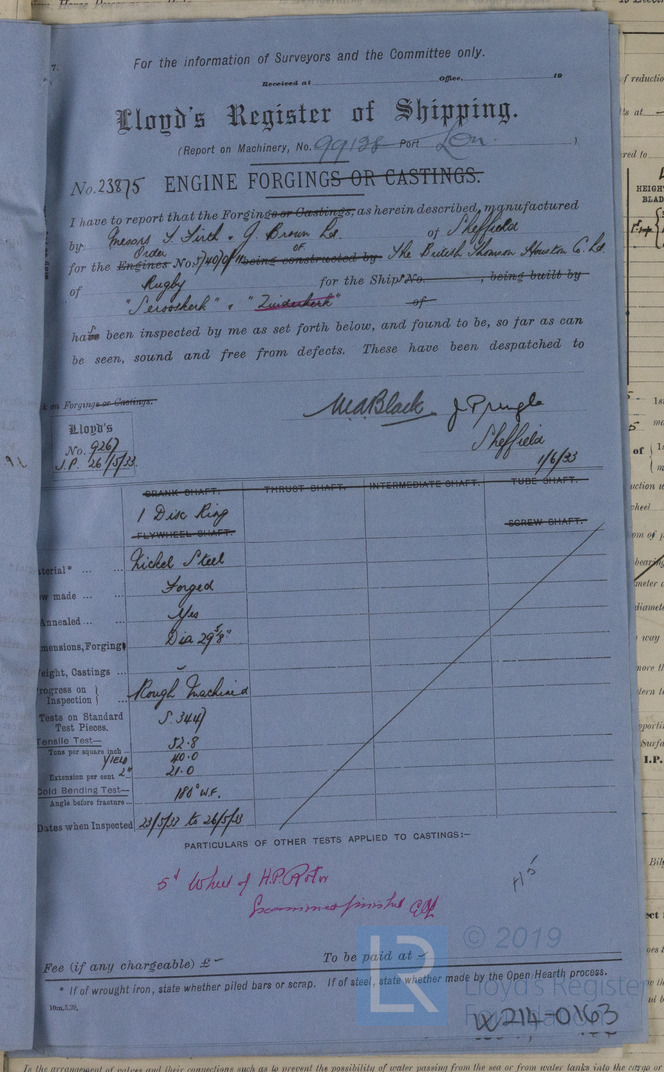 7.
For the information of Surveyors and the Committee only.
Received at Office, 19
Lloyd's Register of Shipping.
(Report on Machinery, No. 99138 Port Lon. )
No. 23875 ENGINE FORGINGS OR CASTINGS.
I have to report that the Forgings or Castings, as herein described, manufactured
by Messrs T. Firth & J. Brown Ld. of Sheffield
for the Engines Order No. 5/40/9 being constructed by OF The British Thomson Houston Co. Ld
of Rugby for the Ship No. , being built by
"Serooskerk" & "Zuiderkerk" of
have been inspected by me as set forth below, and found to be, so far as can
be seen, sound and free from defects. These have been despatched to
on Forgings or Castings.
W.A. Black J. Pringle
Lloyd's
No. 9267
J.P. 26/5/33.
Sheffield
1/6/33
CRANK SHAFT. THRUST SHAFT. INTERMEDIATE SHAFT. TUBE SHAFT.
1 Disc Ring
FLYWHEEL SHAFT. SCREW SHAFT.
terial* ... ... Nickel Steel
w made ... ... Forged
Annealed ... ... Yes
mensions, Forgings Dia 29 5/8"
eight, Castings ... -
rogress on Inspection } ... Rough Machined
Tests on Standard Test Pieces. S. 344
Tensile Test—
Tons per square inch 52.8
YIELD 40.0
Extension per cent 2" 21.0
Cold Bending Test—
Angle before fracture 180° W.F.
Dates when Inspected 23/5/33 to 26/5/33
PARTICULARS OF OTHER TESTS APPLIED TO CASTINGS:—
5th Wheel of H.P. Rotor
Examined finished
© 2019
Fee (if any chargeable) £ - To be paid at -
* If of wrought iron, state whether piled bars or scrap. If of steel, state whether made by the Open Hearth process.
10m,5,29.
LR
Lloyd's Register
Foundation
W214-0163
f reduction
ts at
red to
HEIGH
BLAD
1st
of
I.P.
ls the arrangement of valves and their connections such as to prevent the possibility of water passing from the sea or from water tanks into the cargo or